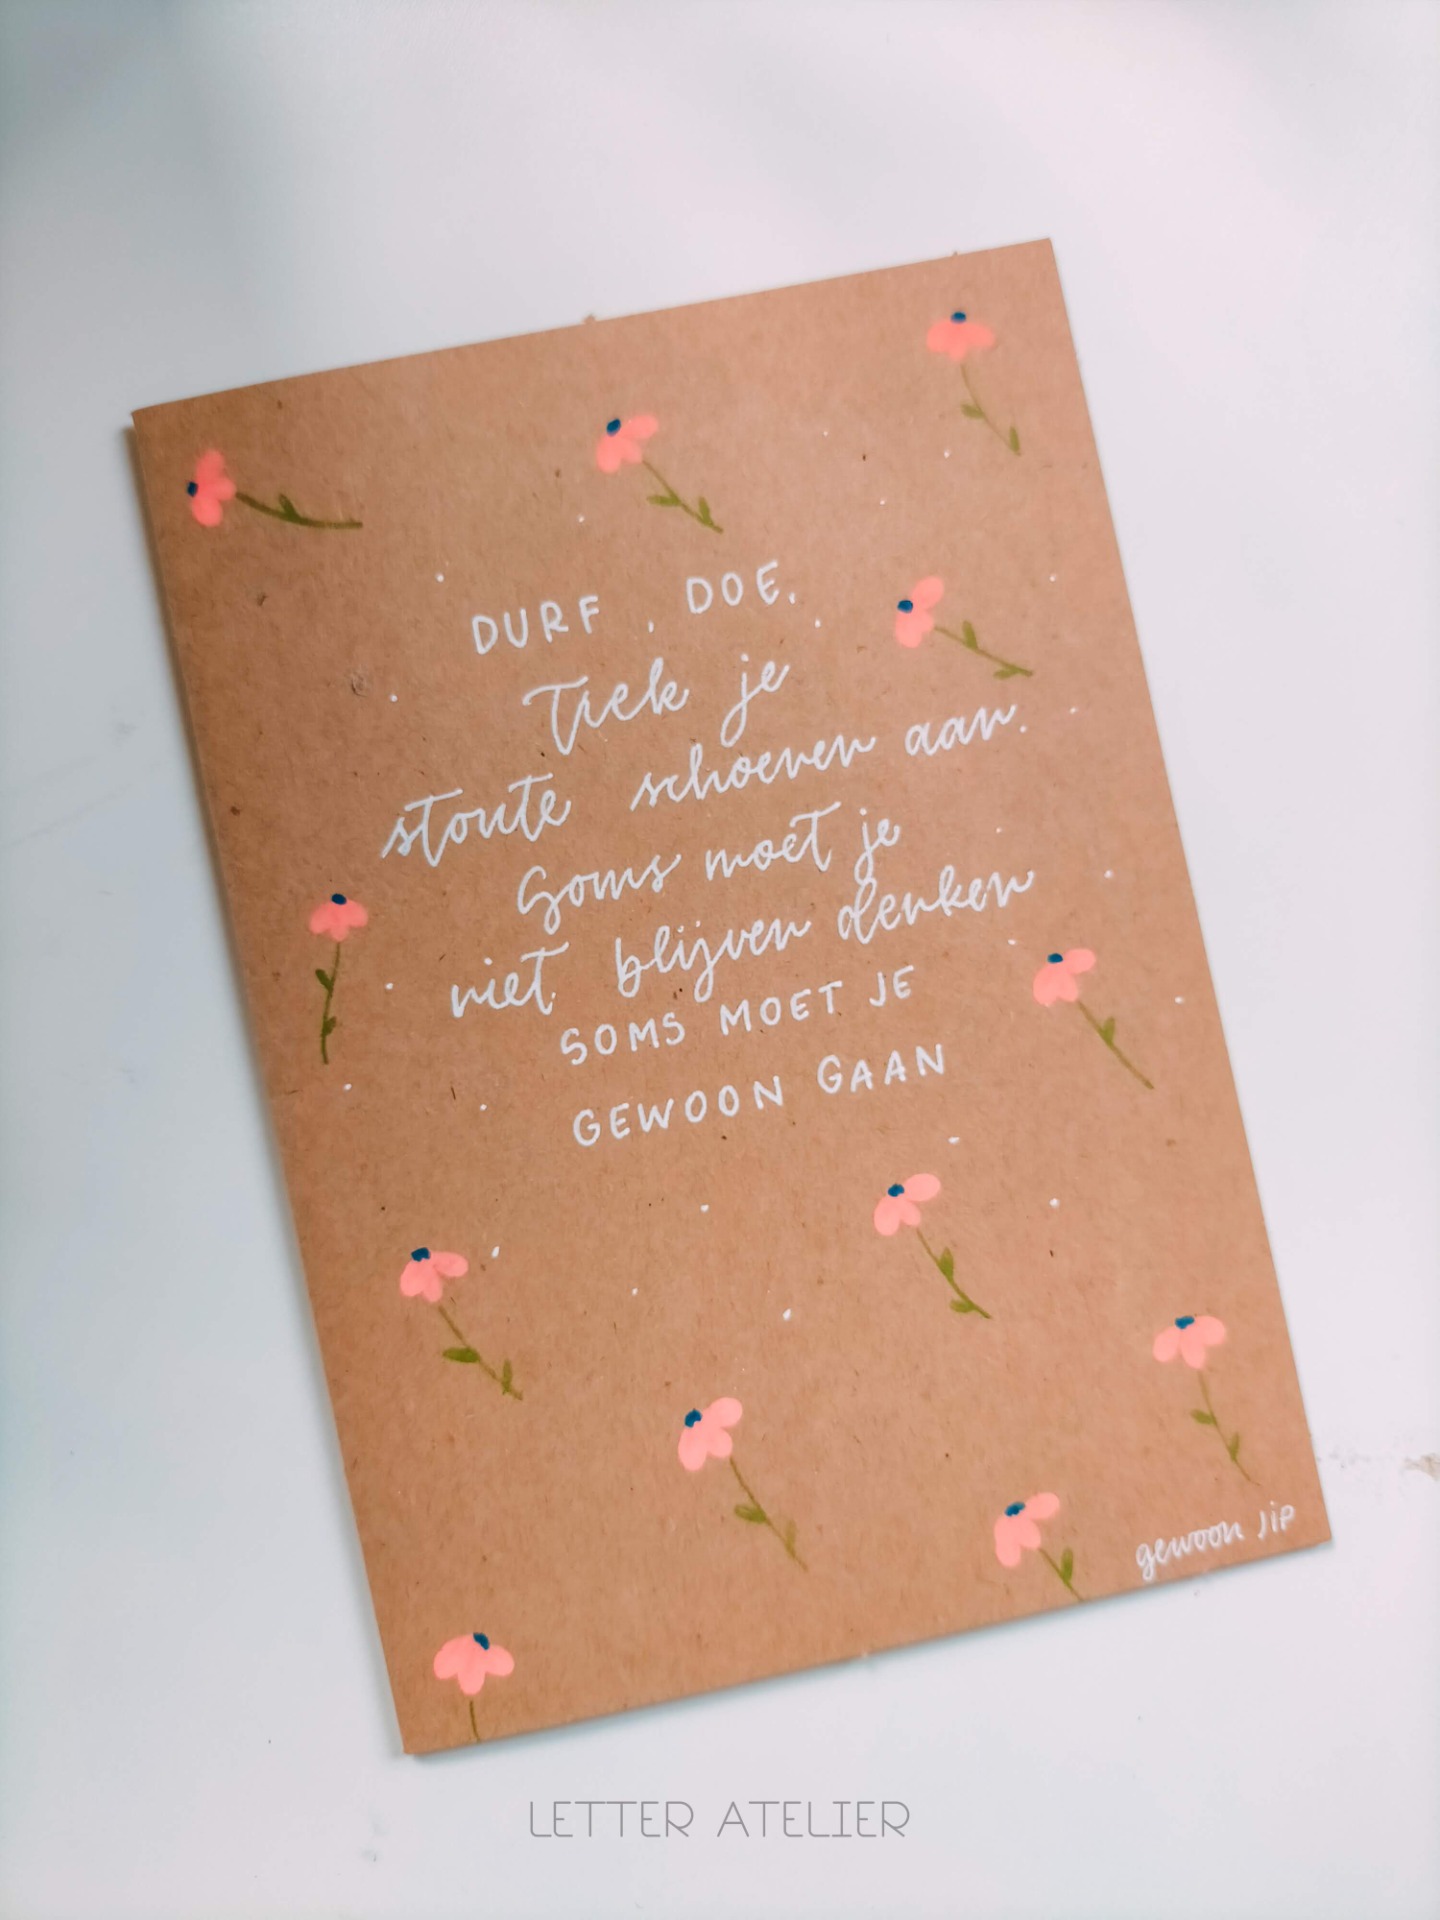 DURF, DOE.
Trek je
stoute schoenen aan.
Soms moet je
niet blijven denken
SOMS MOET JE
GEWOON GAAN
gewoon JIP
LETTER ATELIER